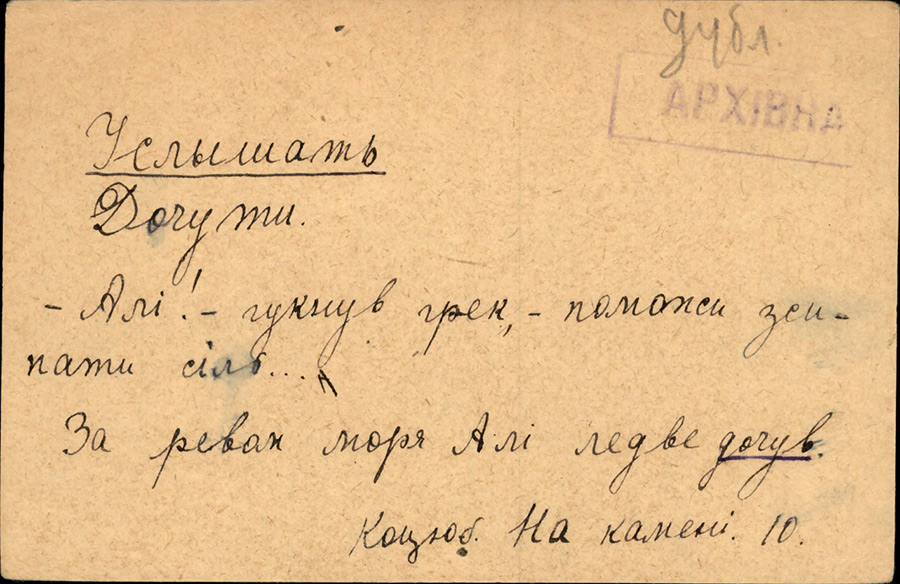 дубл.
АРХІВНА
Услышать
Дочути.
– Алі! – гукнув грек, – поможи зси-
пати сіль...
За ревом моря Алі ледве дочув.
Коцюб. На камені. 10.